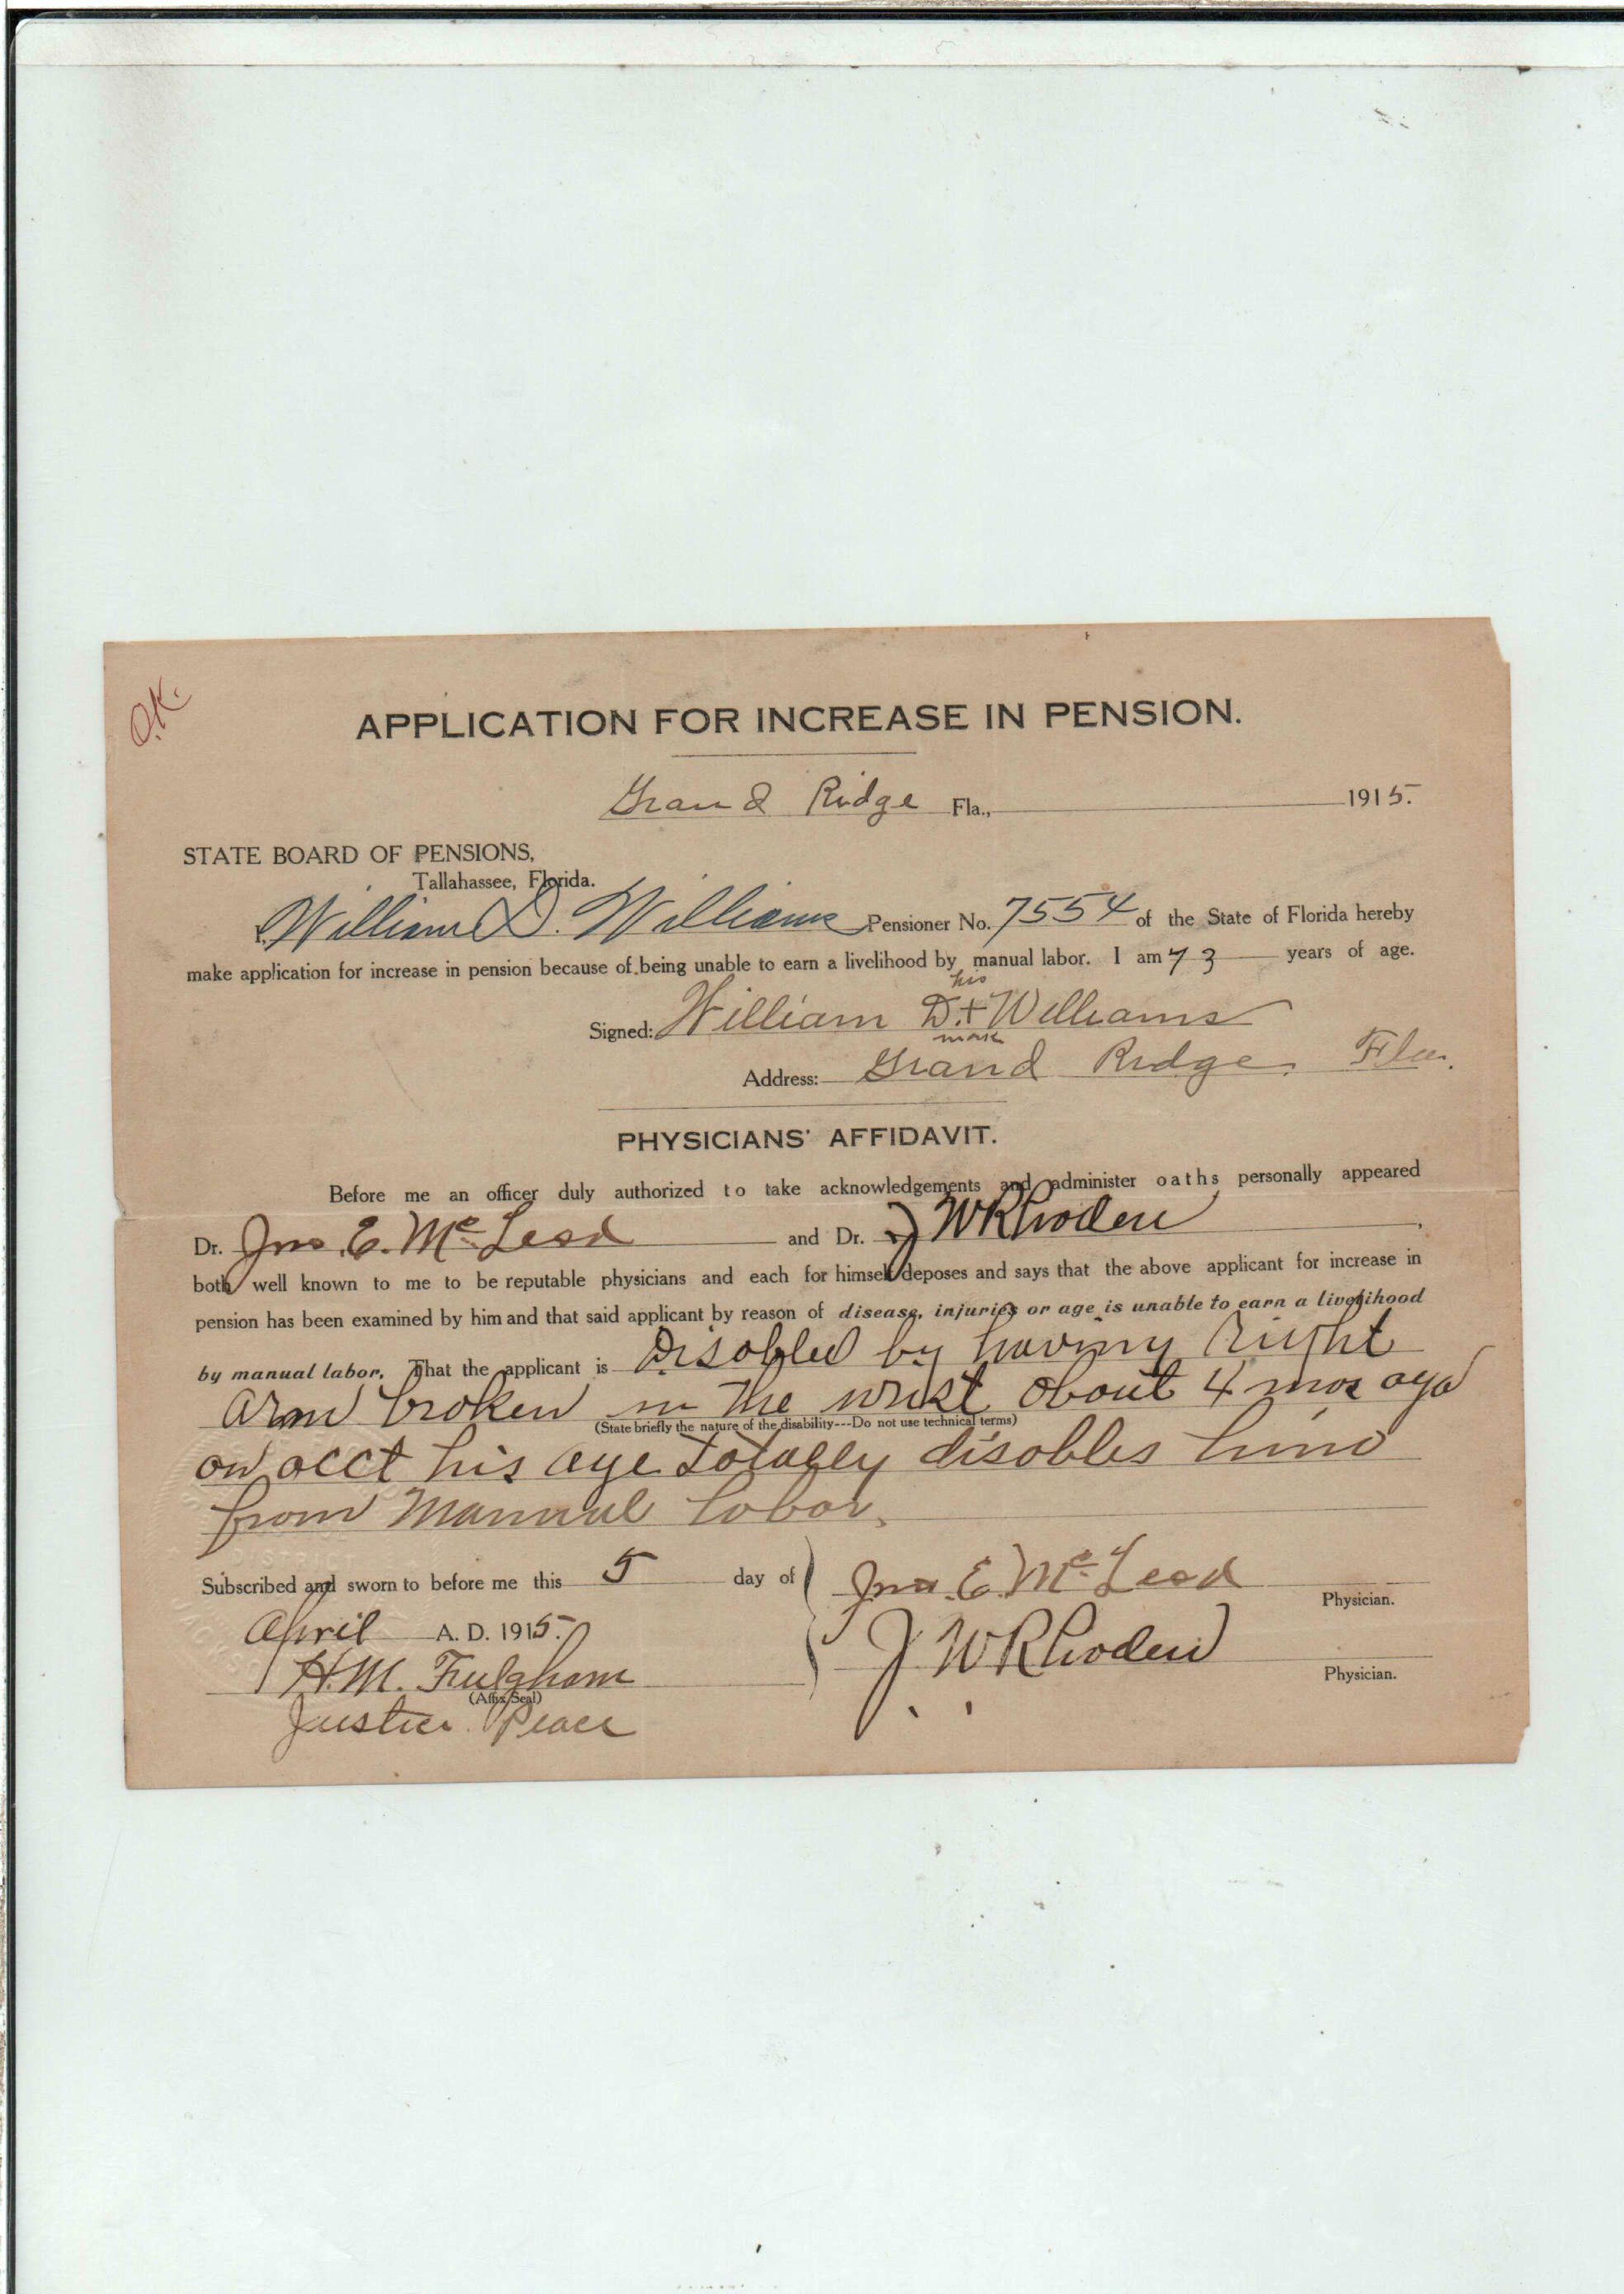 O.K.
APPLICATION FOR INCREASE IN PENSION.
Grand Ridge Fla., 1915.
STATE BOARD OF PENSIONS,
Tallahassee, Florida.
I, William D. Williams Pensioner No. 7554 of the State of Florida hereby
make application for increase in pension because of being unable to earn a livelihood by manual labor. I am 73 years of age.
his
Signed: William D. + Williams
mark
Address: Grand Ridge, Fla.
PHYSICIANS' AFFIDAVIT.
Before me an officer duly authorized to take acknowledgements and administer oaths personally appeared
Dr. Jno. E. McLeod and Dr. J W Rhoden,
both well known to me to be reputable physicians and each for himself deposes and says that the above applicant for increase in
pension has been examined by him and that said applicant by reason of disease, injuries or age is unable to earn a livelihood
by manual labor. That the applicant is Disabled by having Right
arm broken in the wrist about 4 mos ago
(State briefly the nature of the disability---Do not use technical terms)
on acct his age totally disables him
from Manual labor.
DISTRICT
Subscribed and sworn to before me this 5 day of Jno. E. McLeod
Physician.
April A. D. 1915. J W Rhoden
Physician.
H. M. Fulghom
(Affix Seal)
Justice Peace